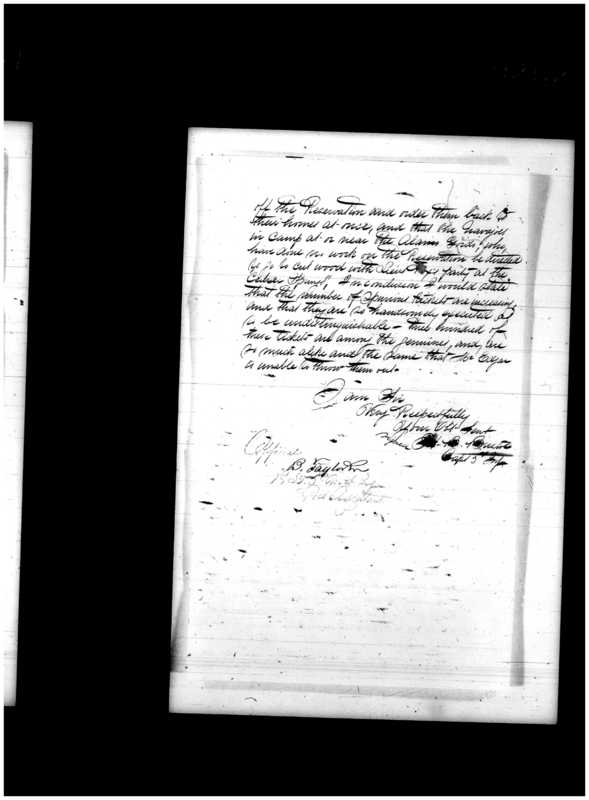 off the Reservation and order them back to
their homes at once, and that the Navajoes
in camp at or near the Alamo Gordo, who
have done no work on the Reservation be directed
to go to cut wood with party at the
Cedar Springs, In conclusion I would state
that the number of Spurious tickets are increasing
and that they are so handsomely executed as
to be undistinguishable - three hundred of
these tickets are among the genuine, and are
so much alike and the same that Mr Edgar
is unable to throw them out.
I am Sir
Very Respectfully
Your Obt Servt
Capt 5" Infy
Official
B. Taylor